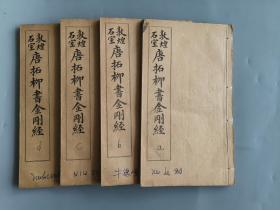 敦煌
石室
唐拓柳書金剛經
d
敦煌
石室
唐拓柳書金剛經
c
敦煌
石室
唐拓柳書金剛經
b
敦煌
石室
唐拓柳書金剛經
a